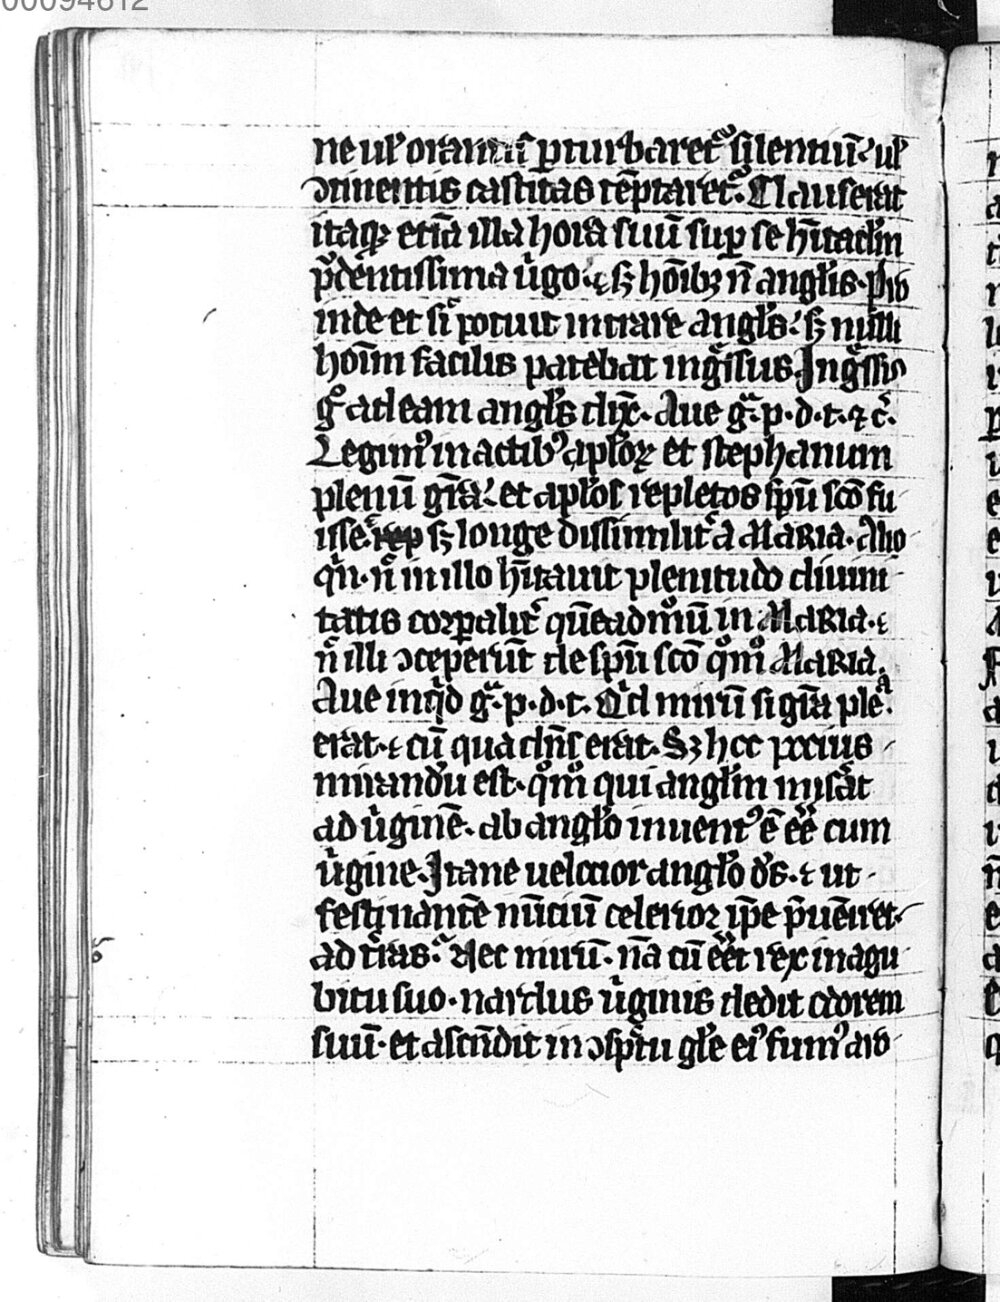 00094612
ne ul' orantiū ꝑturbaret᷑ silentiū: ul'
ↄtinentis castitas tēptaret᷑. Clauserat
itaqꝫ etiā illa hora suū suꝑ se hītac̄lm
p̄dentissima ůgo. ⁊ sꝫ hōibꝫ n̄ angl'is. ꝓ
inde et si potuit intrare angl's: sꝫ nulli
hoīm facilis patebat ingͣssus. Ingͣssus
gͦ ad eam angl's dix̄. Aue gͣ. p. d. t. ⁊ c̄.
Legimꝰ in actibꝰ apl'oꝝ et stephanum
plenū gr̄a: et apl'os repletos sp̄u sc̄o fu
isse. sꝫ longe dissimilit᷑ a Maria. Alio
qn̄. n̄ in illo hītauit plenitudo diuini
tatis corꝑalit᷑ quēadmͦū in Maria. ⁊
n̄ illi ↄceperūt de sp̄u sc̄o qͦmͦ Maria.
Aue inqͥd gͣ. p. d. t. Qͥd mirū si gr̄a pleͣ.
erat. ⁊ cū qua dn̄s erat. Sꝫ hoc pocius
mirandū est. qͦmͦ qui angl'm misāt
ad ůginē. ab angl'o inuentꝰ ē eē cum
ůgine. Itane uelocior angl'o d's. ⁊ ut
festinantē nūciū celerior ip̄e p̄uēiret
ad t̄ras. Nec mirū. nā cū eēt rex in accu
bitu suo. nardus ůginis dedit odorem
suū. et ascēdit in ↄspc̄tu gl'e eiꝰ fumꝰ aro